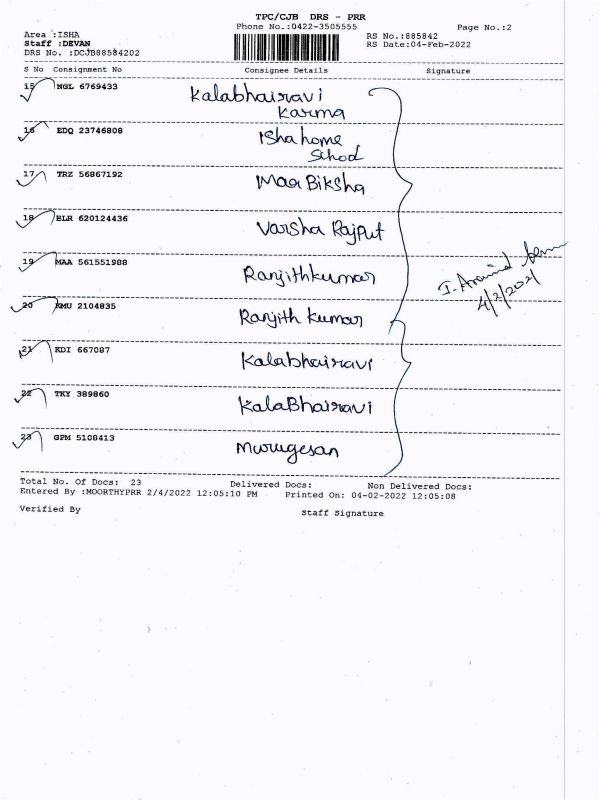 TPC/CJB DRS - PRR
Phone No.:0422-3505555 Page No.:2
Area :ISHA RS No.:885842
Staff :DEVAN RS Date:04-Feb-2022
DRS No. :DCJB88584202
S No Consignment No Consignee Details Signature
15 NGL 6769433 Kalabhairavi
Karma
16 EDQ 23746808 Isha home
School
17 TRZ 56867192 Maa Biksha
18 BLR 620124436 Varsha Rajput
19 MAA 561551988 Ranjithkumar
20 KMU 2104835 Ranjith Kumar
4/2/2021
21 KDI 667087 Kalabhairavi
22 TKY 389860 KalaBhairavi
23 GPM 5108413 Murugesan
Total No. Of Docs: 23 Delivered Docs: Non Delivered Docs:
Entered By :MOORTHYPRR 2/4/2022 12:05:10 PM Printed On: 04-02-2022 12:05:08
Verified By Staff Signature